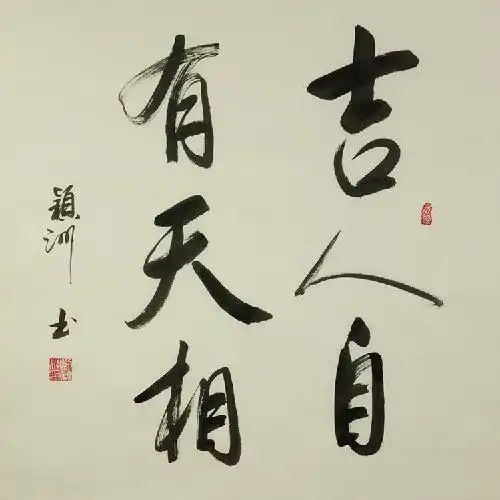 吉人自
有天相
颖洲书